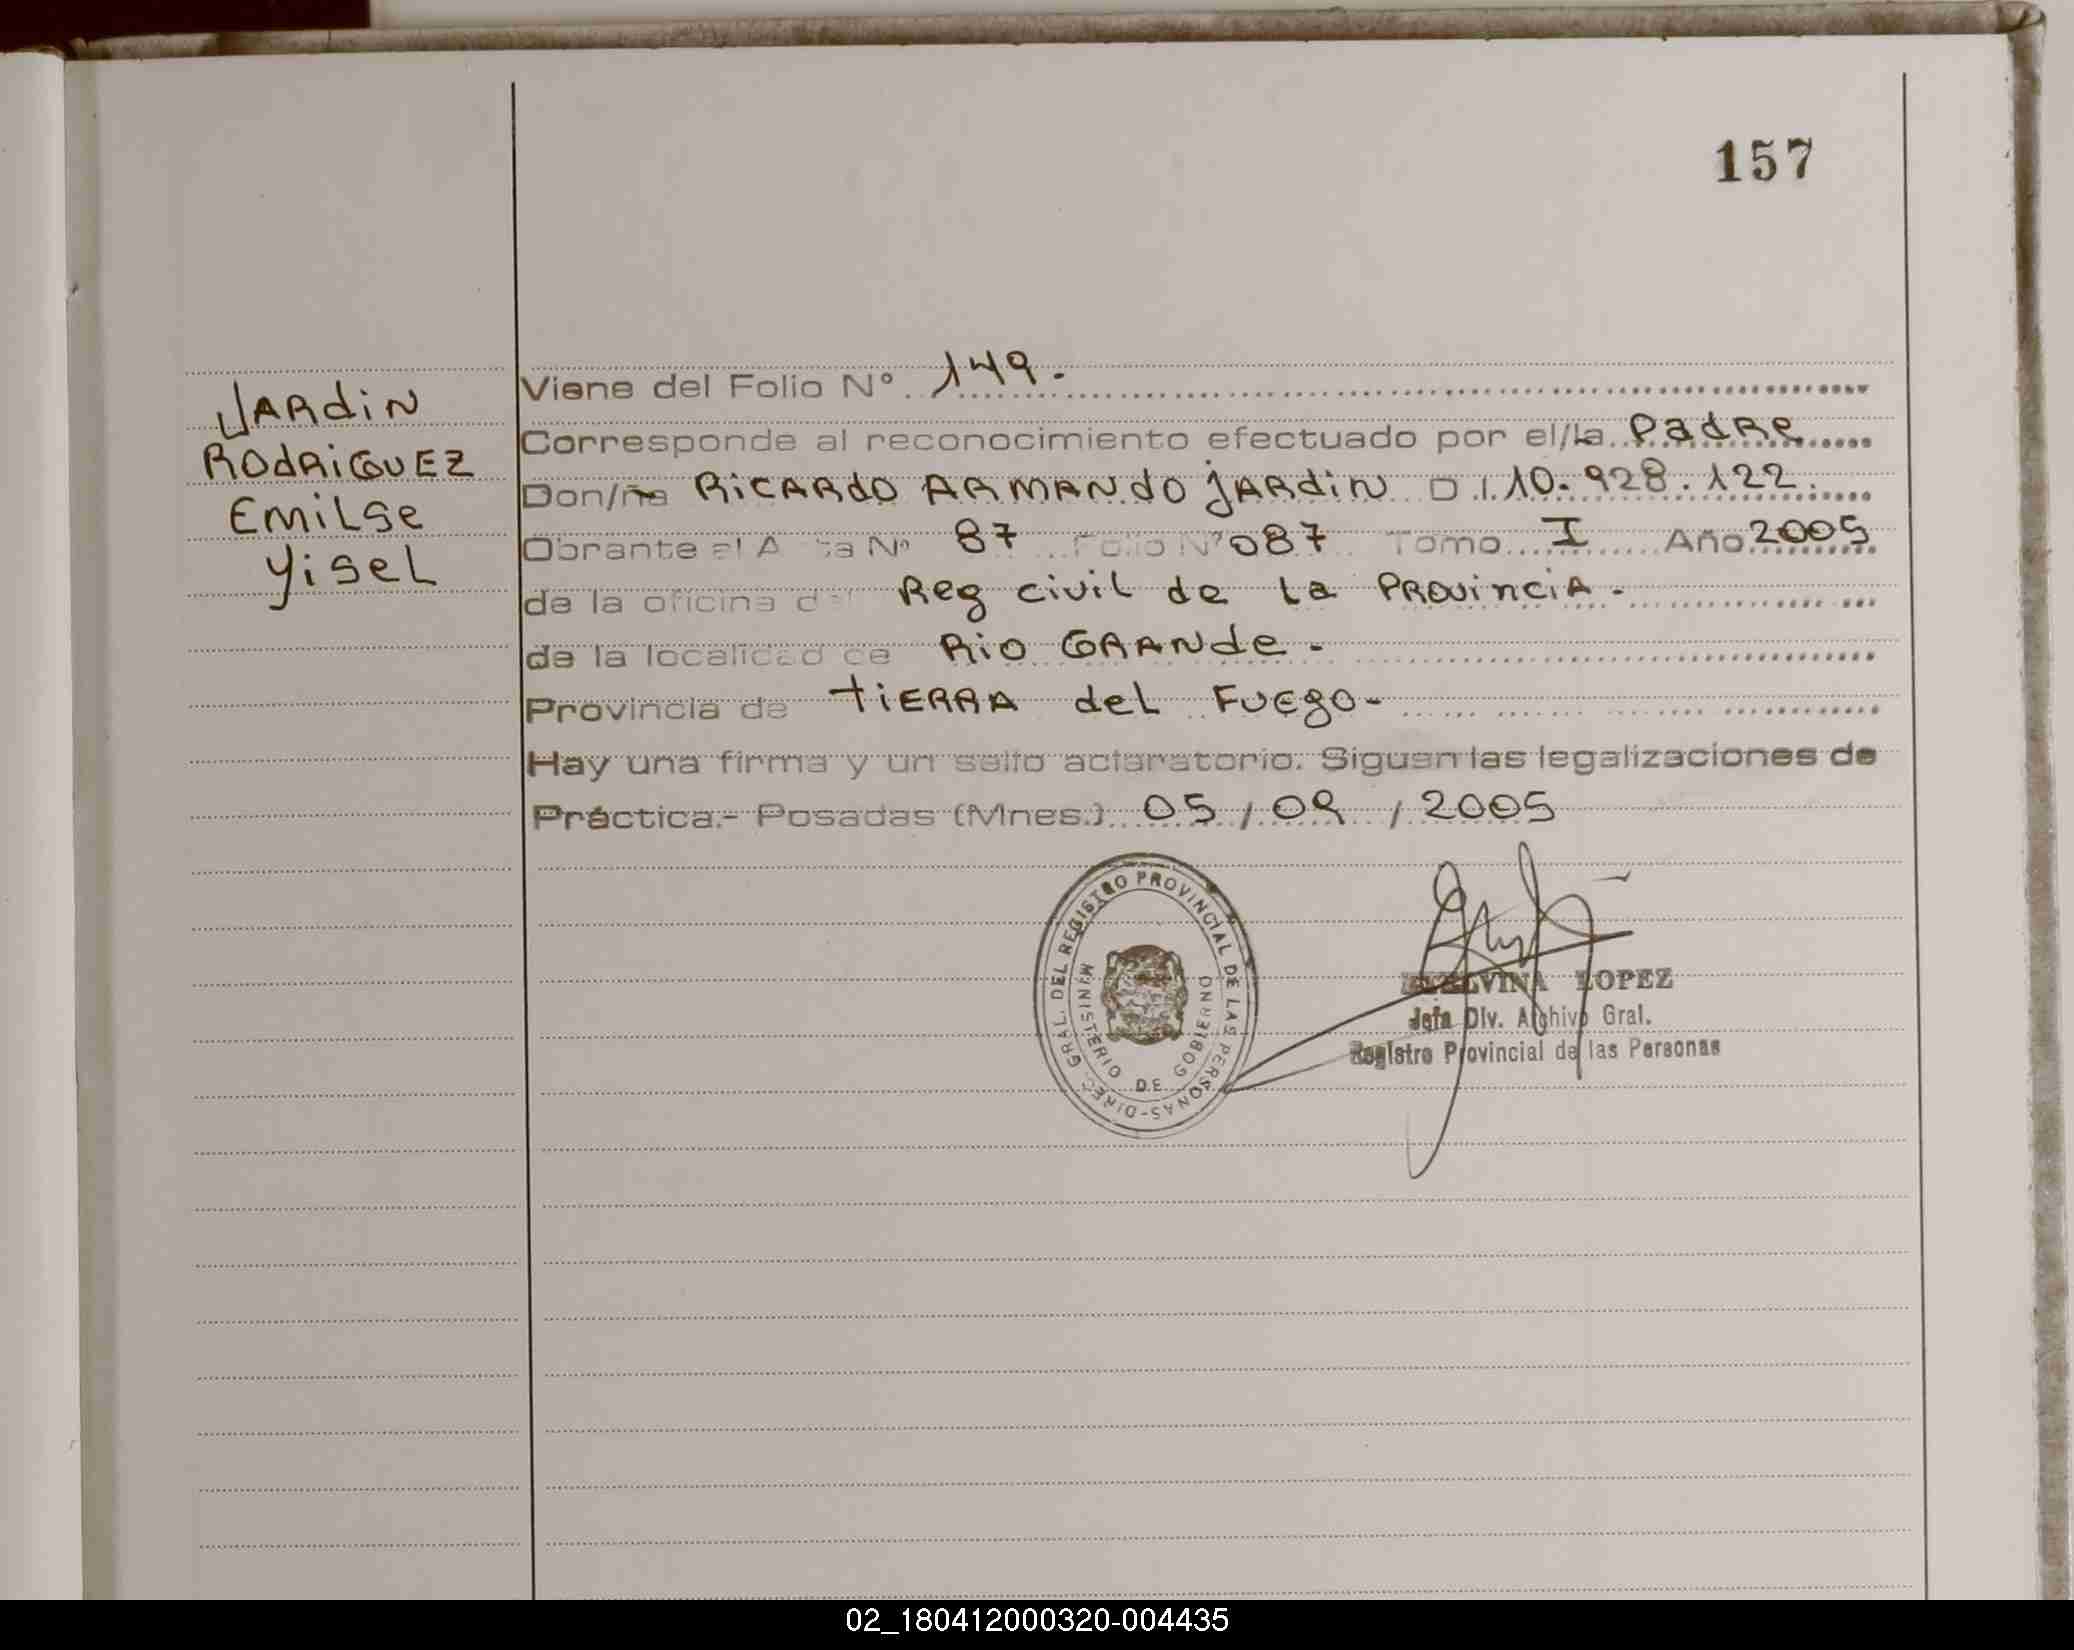 157
JARdiN
RODRiGUEZ
EMiLSe
YiseL
Viene del Folio N° 149.
Corresponde al reconocimiento efectuado por el/la Padre
Don/ña RiCARdO ARMANdO JARdiN D.I. 10.928.122.
Obrante el Acta N° 87 Folio N° 087 Tomo I Año 2005
de la oficina del Reg civil de La PROvinciA.
de la localidad de RiO GRANde.
Provincia de tiERRA deL FUEgo-
Hay una firma y un sello aclaratorio. Siguen las legalizaciones de
Práctica.- Posadas (Mnes.) 05 / 09 / 2005
DIREC. GRAL. DEL REGISTRO PROVINCIAL DE LAS PERSONAS-
MINISTERIO DE GOBIERNO
LOPEZ
Jefa Div. Archivo Gral.
Registro Provincial de las Personas
02_180412000320-004435